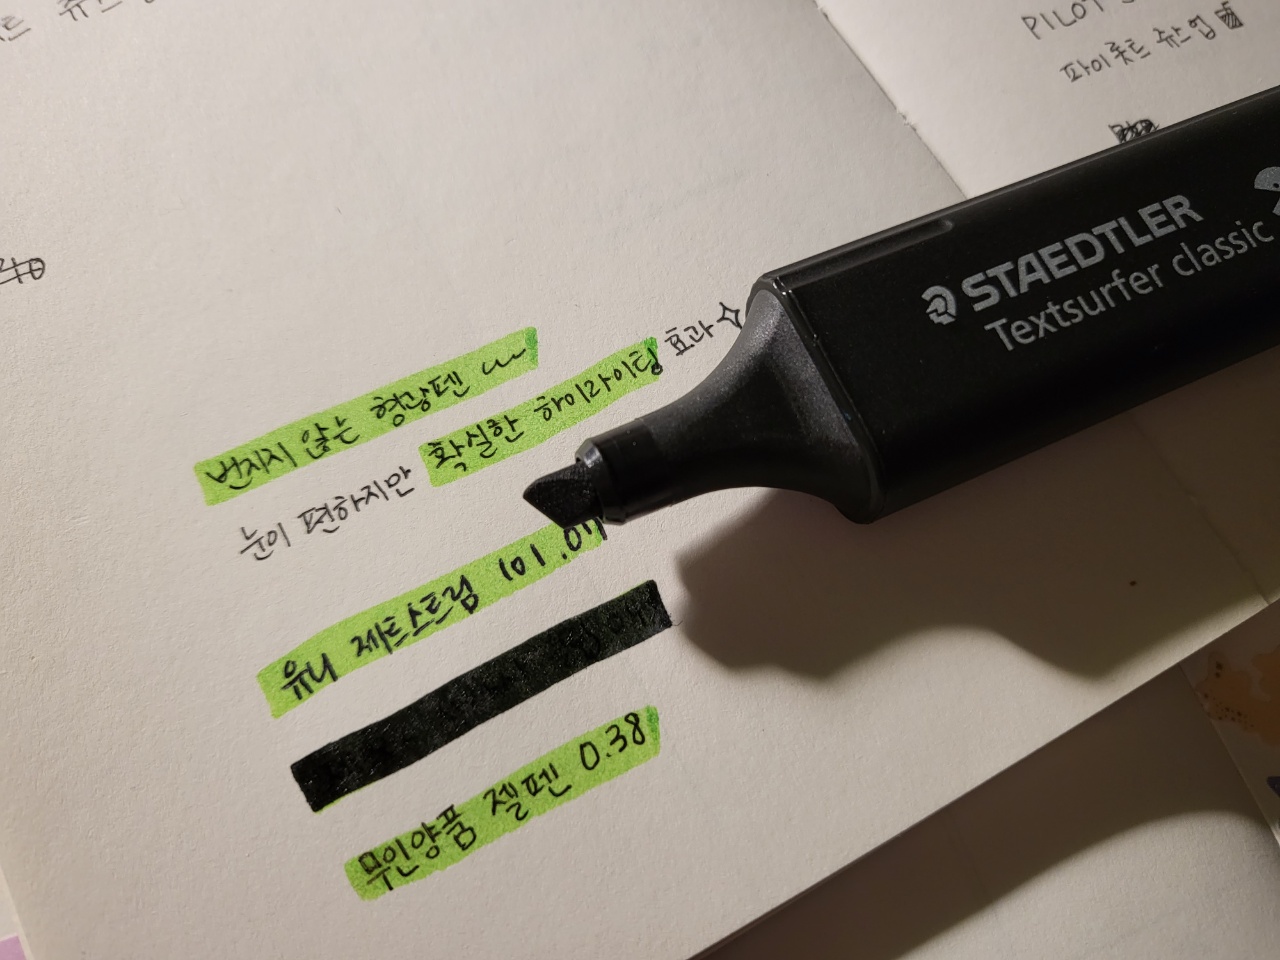 PILOT
파이롯트 쥬스업
STAEDTLER
Textsurfer classic
번지지 않는 형광펜
눈이 편하지만 확실한 하이라이팅 효과
유니 제트스트림 101 .07
무인양품 젤펜 0.38